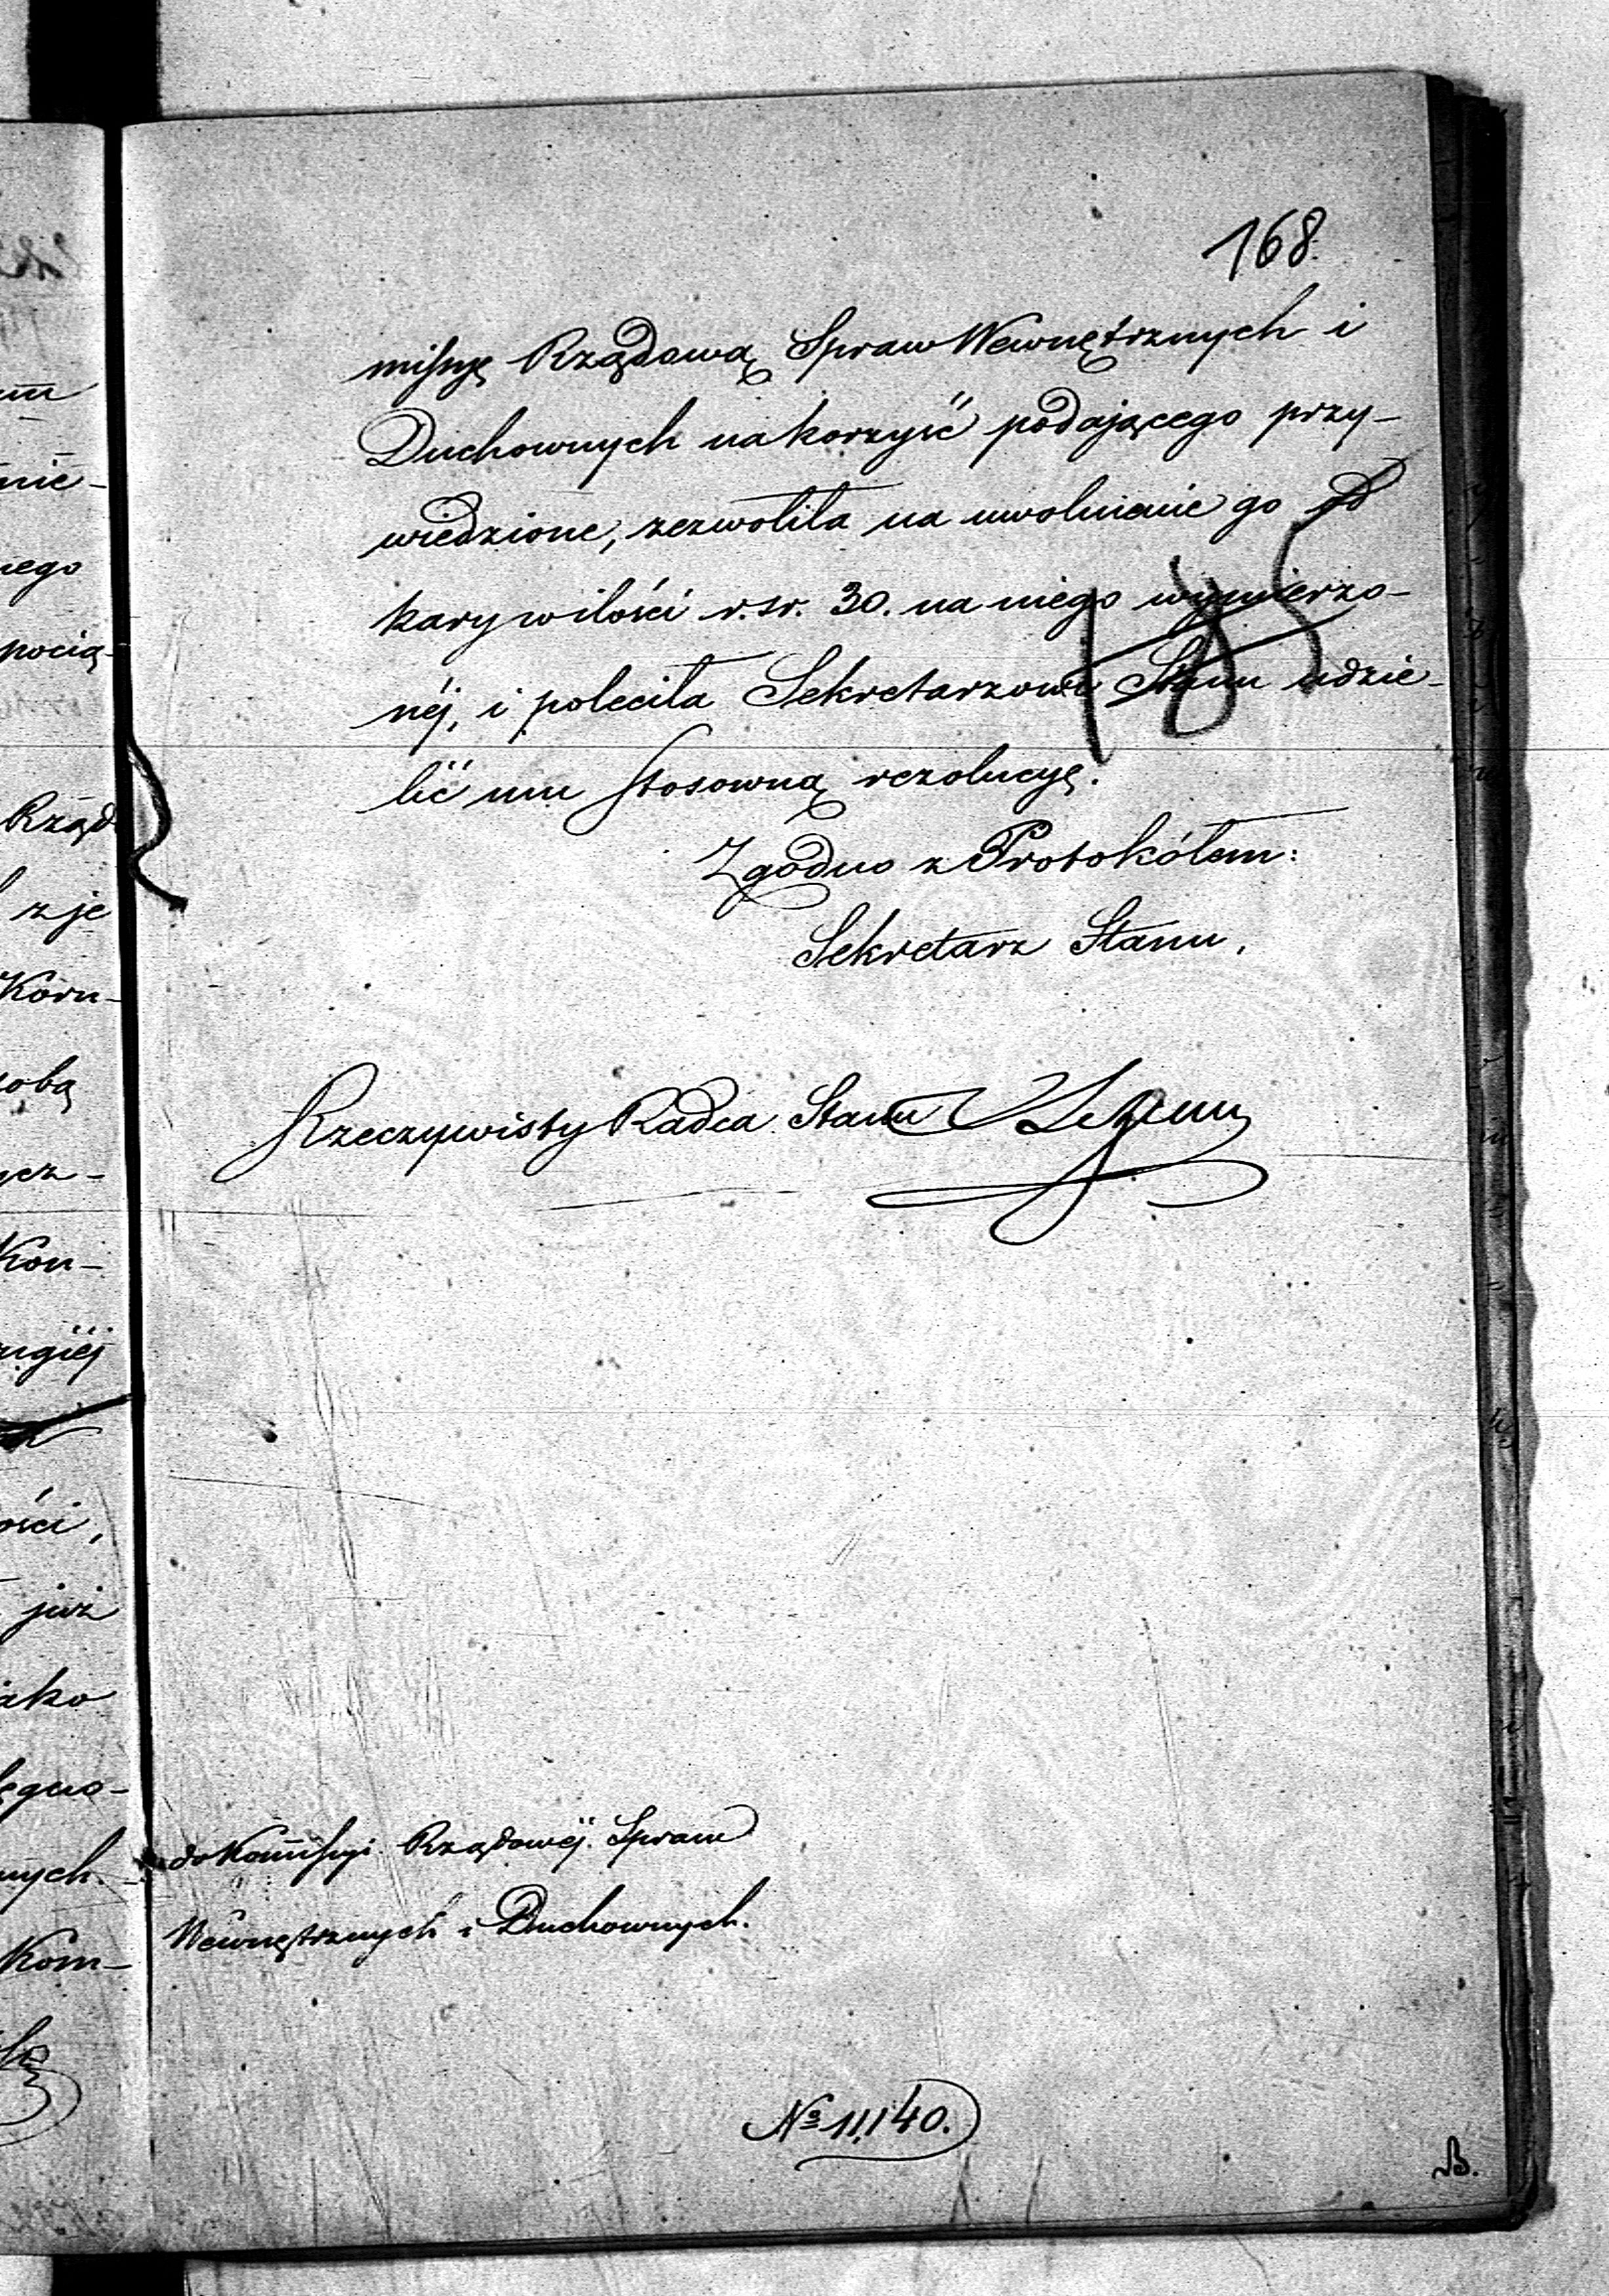 168.
missyę Rządową Spraw Wewnętrznych i
Duchownych na korzyść podającego przy-
wiedzione, zezwoliła na uwolnienie go od
kary w ilości r.sr. 30. na niego wymierzo-
néj, i poleciła Sekretarzowi Stanu udzie-
lić mu stosowną rezolucyę.
185
Zgodno z Protokółem:
Sekretarz Stanu,
Rzeczywisty Radca Stanu
do Kommissyi Rządowéj Spraw
Wewnętrznych i Duchownych.
№ 11,140.
B.
um
nie-
nego
pocią-
Rząd
zje
Korn-
sobą
ycz-
Kon-
ości,
już
jako
nych
Kom-